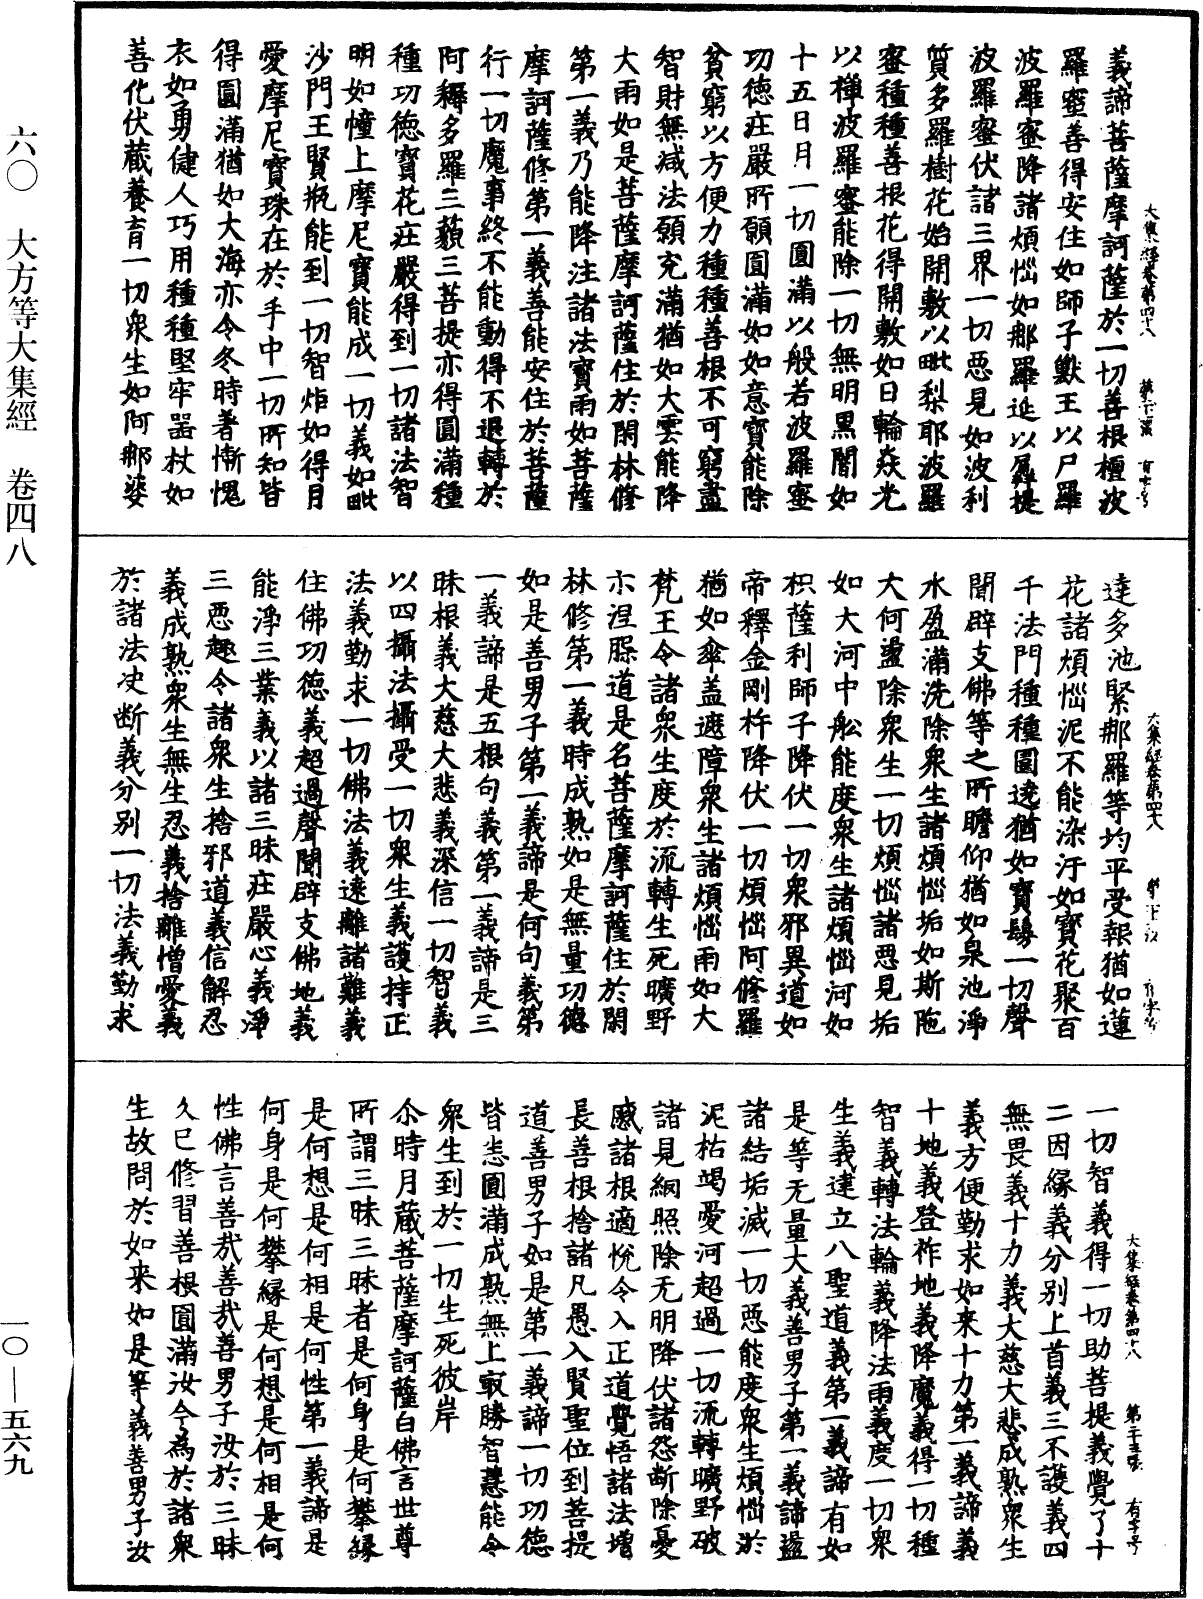 六〇　大方等大集經　卷四八
一〇—五六九
大集經卷第四十八
義諦菩薩摩訶薩於一切善根檀波
羅蜜善得安住如師子獸王以尸羅
波羅蜜降諸煩惱如那羅延以羼提
波羅蜜伏諸三界一切惡見如波利
質多羅樹花始開敷以毗梨耶波羅
蜜種種善根花得開敷如日輪焱光
以禪波羅蜜能除一切無明黑闇如
十五日月一切圓滿以般若波羅蜜
功德庄嚴所願圓滿如如意寶能除
貧窮以方便力種種善根不可窮盡
智財無減法願充滿猶如大雲能降
大雨如是菩薩摩訶薩住於閑林修
第一義乃能降注諸法寶雨如菩薩
摩訶薩修第一義善能安住於菩薩
行一切魔事終不能動得不退轉於
阿耨多羅三藐三菩提亦得圓滿種
種功德寶花庄嚴得到一切諸法智
明如幢上摩尼寶能成一切義如毗
沙門王賢瓶能到一切智炬如得月
愛摩尼寶珠在於手中一切所知皆
得圓滿猶如大海亦令冬時著慚愧
衣如勇健人巧用種種堅牢器杖如
善化伏藏養育一切衆生如阿那婆
大集經卷第四十八
達多池緊那羅等均平受報猶如蓮
花諸煩惱泥不能染汙如寶花聚百
千法門種種圍遶猶如寶鬘一切聲
聞辟支佛等之所瞻仰猶如泉池淨
水盈滿洗除衆生諸煩惱垢如斯陁
大何盪除衆生一切煩惱諸惡見垢
如大河中舩能度衆生諸煩惱河如
枳薩利師子降伏一切衆邪異道如
帝釋金剛杵降伏一切煩惱阿修羅
猶如傘盖遮障衆生諸煩惱雨如大
梵王令諸衆生度於流轉生死曠野
示涅槃道是名菩薩摩訶薩住於閑
林修第一義時成熟如是無量功德
如是善男子第一義諦是何句義第
一義諦是五根句義第一義諦是三
昧根義大慈大悲義深信一切智義
以四攝法攝受一切衆生義護持正
法義勤求一切佛法義遠離諸難義
住佛功德義超過聲聞辟支佛地義
能淨三業義以諸三昧庄嚴心義淨
三惡趣令諸衆生捨邪道義信解忍
義成熟衆生無生忍義捨離憎愛義
於諸法决断義分别一切法義勤求
大集經卷第四十八　第二十五張　有字号
一切智義得一切助菩提義覺了十
二因緣義分别上首義三不護義四
無畏義十力義大慈大悲成熟衆生
義方便勤求如来十力第一義諦義
十地義登祚地義降魔義得一切種
智義轉法輪義降法雨義度一切衆
生義建立八聖道義第一義諦有如
是等无量大義善男子第一義諦遮
諸結垢滅一切惡能度衆生煩惱淤
泥枯竭愛河超過一切流轉曠野破
諸見網照除无明降伏諸怨断除憂
慼諸根適悅令入正道覺悟諸法增
長善根捨諸凡愚入賢聖位到菩提
道善男子如是第一義諦一切功德
皆悉圓滿成熟無上㝡勝智慧能令
衆生到於一切生死彼岸
尒時月藏菩薩摩訶薩白佛言世尊
所謂三昧三昧者是何身是何攀緣
是何想是何相是何性第一義諦是
何身是何攀緣是何想是何相是何
性佛言善㢤善㢤善男子汝於三昧
久已修習善根圓滿汝今為於諸衆
生故問於如来如是等義善男子汝